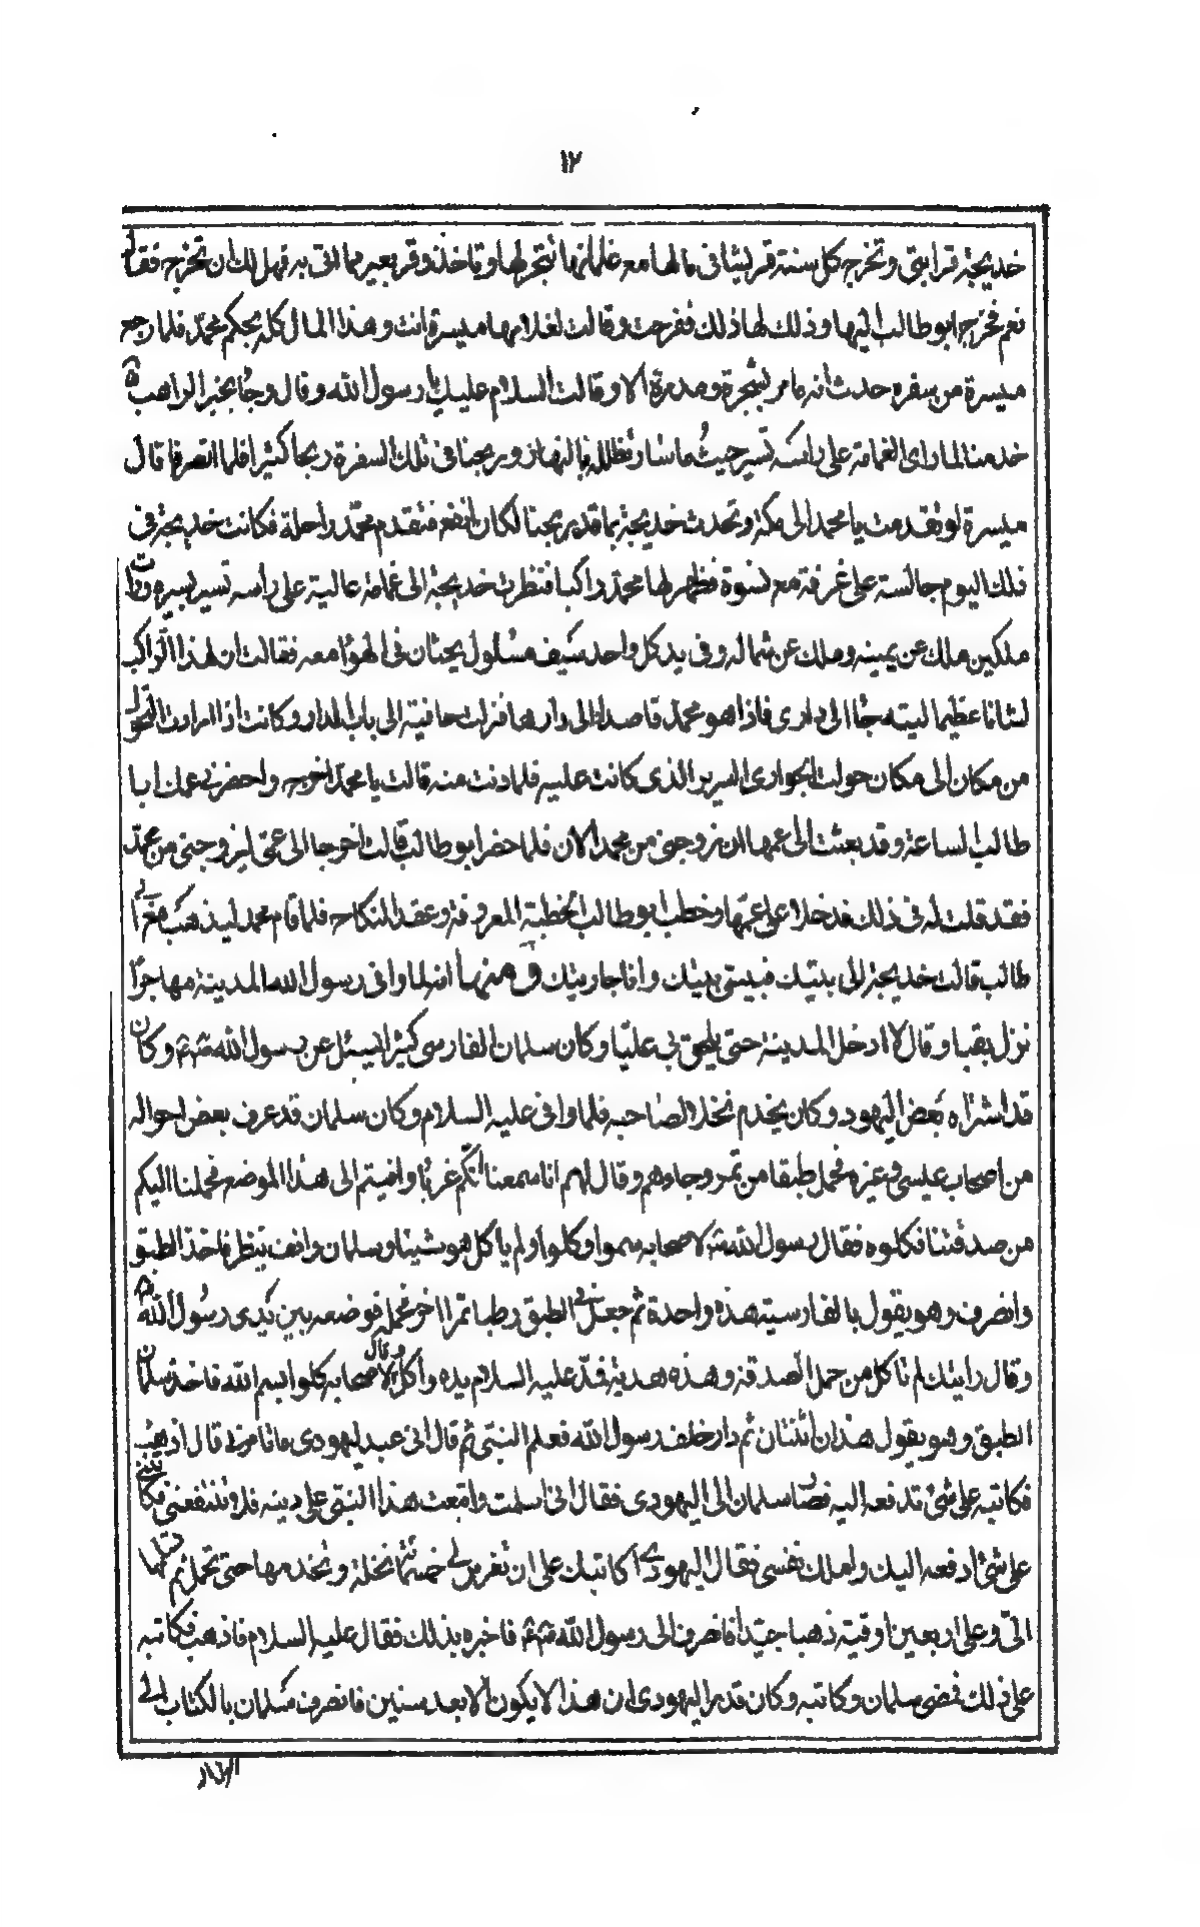 ١٢
خديجة قرابتي وتخرج كل سنة قريشا في مالها مع غلمانها يتجر لها وياخذ وقر بعير مما اتى به فهل لك ان تخرج فقال
نعم فخرج ابو طالب اليها وذلك لها ذلك ففرحت وقالت لغلامها ميسرة انت وهذا المال كله بحكم محمد فلما رجع
ميسرة من سفره حدث انه ما مر بشجرة ومدرة الا وقالت السلام عليك يا رسول الله وقال وجاء بحير الراهب
خدمنا لما راى الغمامة على راسه تسير حيث ما سار تظلله بالنهار وربحنا في تلك السفرة ربحا كثيرا فلما انصرفا قال
ميسرة لو تقدمت يا محمد الى مكة وتحدث خديجة بما قد ربحنا لكان انفع فتقدم محمد راحلة فكانت خديجة في
ذلك اليوم جالسة على غرفة مع نسوة فظهر لها محمد راكبا فنظرت خديجة الى غمامة عالية على راسه تسير بسيره ورات
ملكين ملك عن يمينه وملك عن شماله وفي يد كل واحد سيف مسلول يحثان في الهواء معه فقالت ان لهذا الراكب
لشانا عظيما ليته جاء الى داري فاذا هو محمد قاصدا الى دارها فنزلت حافية الى باب الدار وكانت اذا ارادت التحول
من مكان الى مكان حولت الجواري السرير الذي كانت عليه فلما دنت منه قالت يا محمد اخرج واحضرني عمك ابا
طالب الساعة وقد بعثت الى عمها ان زوجني من محمد الان فلما حضر ابو طالب قالت اخرجا الى عمي ليزوجني من محمد
فقد قلت له في ذلك فدخلا على عمها وخطب ابو طالب الخطبة المعروفة وعقد النكاح فلما قام محمد ليذهب مع ابي
طالب قالت خديجة الى بيتك فبيتي بيتك وانا جاريتك ومنها انه لما وافى رسول الله المدينة مهاجرا
نزل بقبا وقال لا ادخل المدينة حتى يلحق بي عليا وكان سلمان الفارسي كثيرا يسئل عن رسول الله وكان
قد اشتراه بعض اليهود وكان يخدم نخلا لصاحبه فلما وافى عليه السلام وكان سلمان قد عرف بعض احواله
من اصحاب عيسى وغيره فحمل طبقا من تمر وجاءهم وقال لهم انا سمعنا انكم غرباء وافيتم الى هذا الموضع فحملنا اليكم
من صدقتنا فكلوه فقال رسول الله لاصحابه سموا وكلوا ولم ياكل هو شيئا وسلمان واقف ينظر فاخذ الطبق
وانصرف وهو يقول بالفارسية هذه واحدة ثم جعل في الطبق رطبا تمرا اخر فحمله فوضعه بين يدي رسول الله
وقال رايتك لم تاكل من حمل الصدقة وهذه هدية فمد عليه السلام يده واكل وقال لاصحابه كلوا بسم الله فاخذ سلمان
الطبق وهو يقول هذان اثنتان ثم دار خلف رسول الله فعلم النبي ثم قال اني عبد ليهودي فما تامرني قال اذهب
فكاتبه على شئ تدفعه اليه فصار سلمان الى اليهودي فقال اني اسلمت واتبعت هذا النبي على دينه فلا تنتفعني فكاتبني
على شئ ادفعه اليك واملك نفسي فقال اليهودي اكاتبك على ان تغرس لي خمسمائة نخلة وتخدمها حتى تحمل ثم تسلمها
الي وعلى اربعين اوقية ذهبا جيدا فانصرف الى رسول الله فاخبره بذلك فقال عليه السلام فاذهب فكاتبه
على ذلك فمضى سلمان وكاتبه وكان قدر اليهودي ان هذا لا يكون الا بعد سنين فانصرف سلمان بالكتاب الى